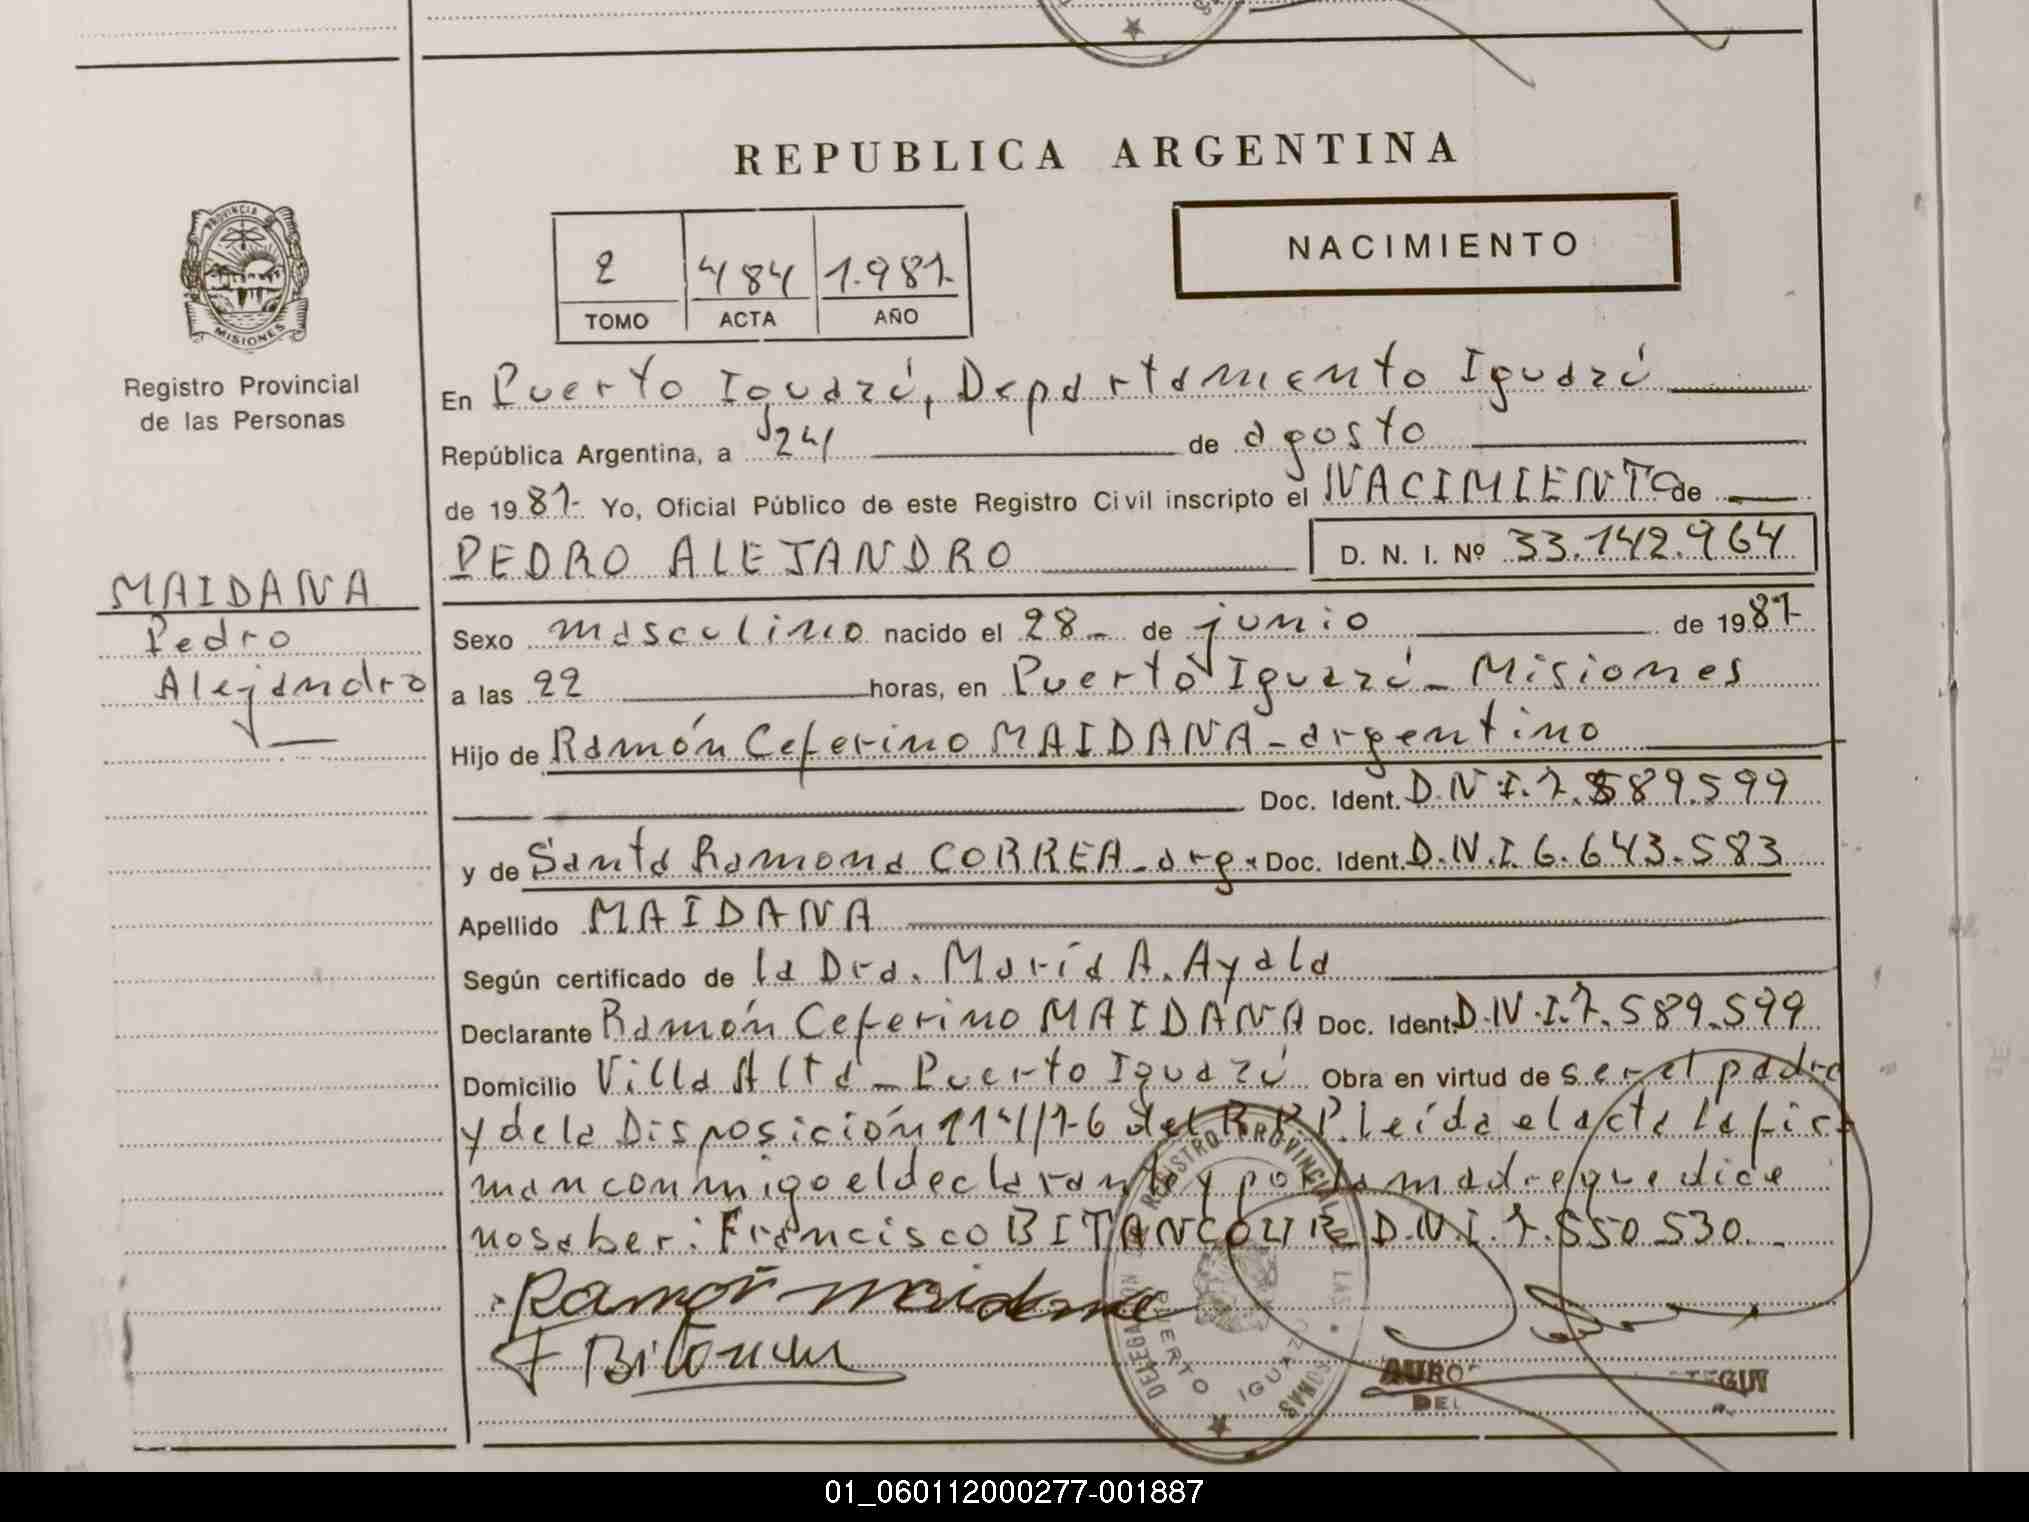 REPUBLICA ARGENTINA
PROVINCIA DE
MISIONES
Registro Provincial
de las Personas
2 484 1.987
TOMO ACTA AÑO
NACIMIENTO
En Puerto Iguazú, Departamento Iguazú
República Argentina, a 24 de agosto
de 1987 Yo, Oficial Público de este Registro Civil inscripto el NACIMIENTO de
PEDRO ALEJANDRO D. N. I. Nº 33.142.964
MAIDANA
Pedro
Alejandro
Sexo masculino nacido el 28 de junio de 1987
a las 22 horas, en Puerto Iguazú - Misiones
Hijo de Ramón Ceferino MAIDANA - argentino
Doc. Ident. D.N.I. 7.589.599
y de Santa Ramona CORREA - arg. Doc. Ident. D.N.I. 6.643.583
Apellido MAIDANA
Según certificado de la Dra. María A. Ayala
Declarante Ramón Ceferino MAIDANA Doc. Ident. D.N.I. 7.589.599
Domicilio Villa Alta - Puerto Iguazú Obra en virtud de ser el padre
y de la Disposición 114/76 del R.P.P. leída el acta la fir
man conmigo el declarante y por la madre que dice
no saber: Francisco BITANCOUR D.N.I. 7.550.530.-
Ramón Maidana
REGISTRO PROVINCIAL DE LAS
DELEGACION PUERTO IGUAZU
01_060112000277-001887